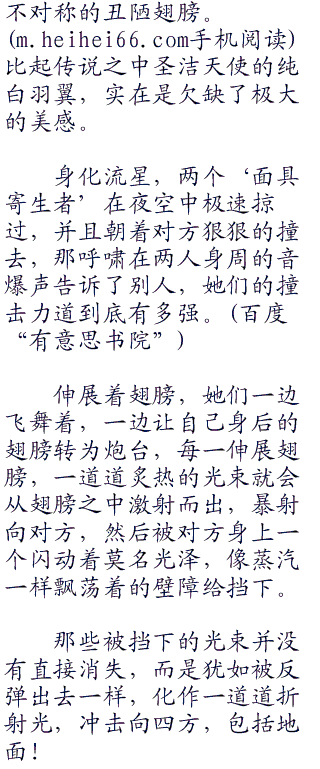 不对称的丑陋翅膀。
(m.heihei66.com手机阅读)
比起传说之中圣洁天使的纯
白羽翼，实在是欠缺了极大
的美感。
身化流星，两个‘面具
寄生者’在夜空中极速掠
过，并且朝着对方狠狠的撞
去，那呼啸在两人身周的音
爆声告诉了别人，她们的撞
击力道到底有多强。(百度
“有意思书院”)
伸展着翅膀，她们一边
飞舞着，一边让自己身后的
翅膀转为炮台，每一伸展翅
膀，一道道炙热的光束就会
从翅膀之中激射而出，暴射
向对方，然后被对方身上一
个闪动着莫名光泽，像蒸汽
一样飘荡着的壁障给挡下。
那些被挡下的光束并没
有直接消失，而是犹如被反
弹出去一样，化作一道道折
射光，冲击向四方，包括地
面！